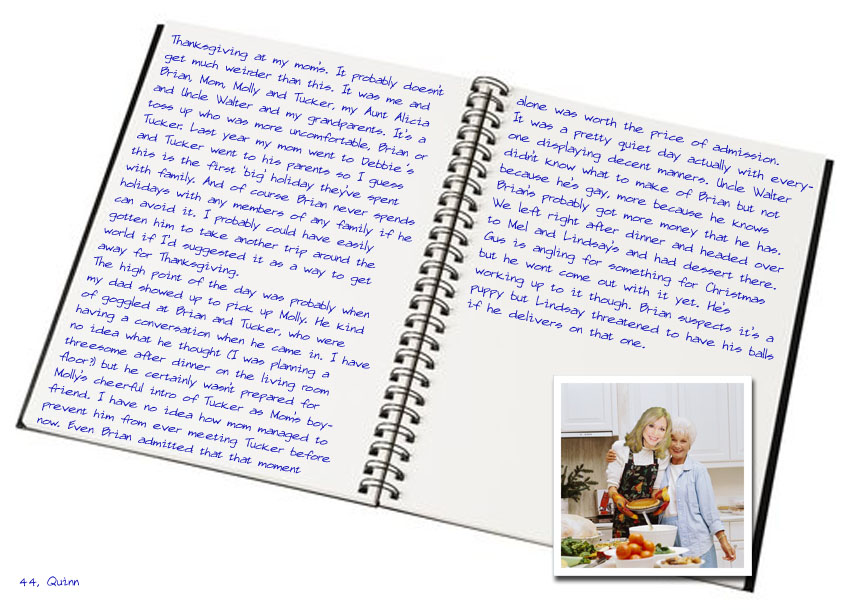 Thanksgiving at my mom's. It probably doesn't
get much weirder than this. It was me and
Brian, Mom, Molly and Tucker, my Aunt Alicia
and Uncle Walter and my grandparents. It's a
toss up who was more uncomfortable, Brian or
Tucker. Last year my mom went to Debbie's
and Tucker went to his parents so I guess
this is the first 'big' holiday they've spent
with family. And of course Brian never spends
holidays with any members of any family if he
can avoid it. I probably could have easily
gotten him to take another trip around the
world if I'd suggested it as a way to get
away for Thanksgiving.
The high point of the day was probably when
my dad showed up to pick up Molly. He kind
of goggled at Brian and Tucker, who were
having a conversation when he came in. I have
no idea what he thought (I was planning a
threesome after dinner on the living room
floor?) but he certainly wasn't prepared for
Molly's cheerful intro of Tucker as Mom's boy-
friend. I have no idea how mom managed to
prevent him from ever meeting Tucker before
now. Even Brian admitted that that moment
alone was worth the price of admission.
It was a pretty quiet day actually with every-
one displaying decent manners. Uncle Walter
didn't know what to make of Brian but not
because he's gay, more because he knows
Brian's probably got more money that he has.
We left right after dinner and headed over
to Mel and Lindsay's and had dessert there.
Gus is angling for something for Christmas
but he wont come out with it yet. He's
working up to it though. Brian suspects it's a
puppy but Lindsay threatened to have his balls
if he delivers on that one.
44, Quinn